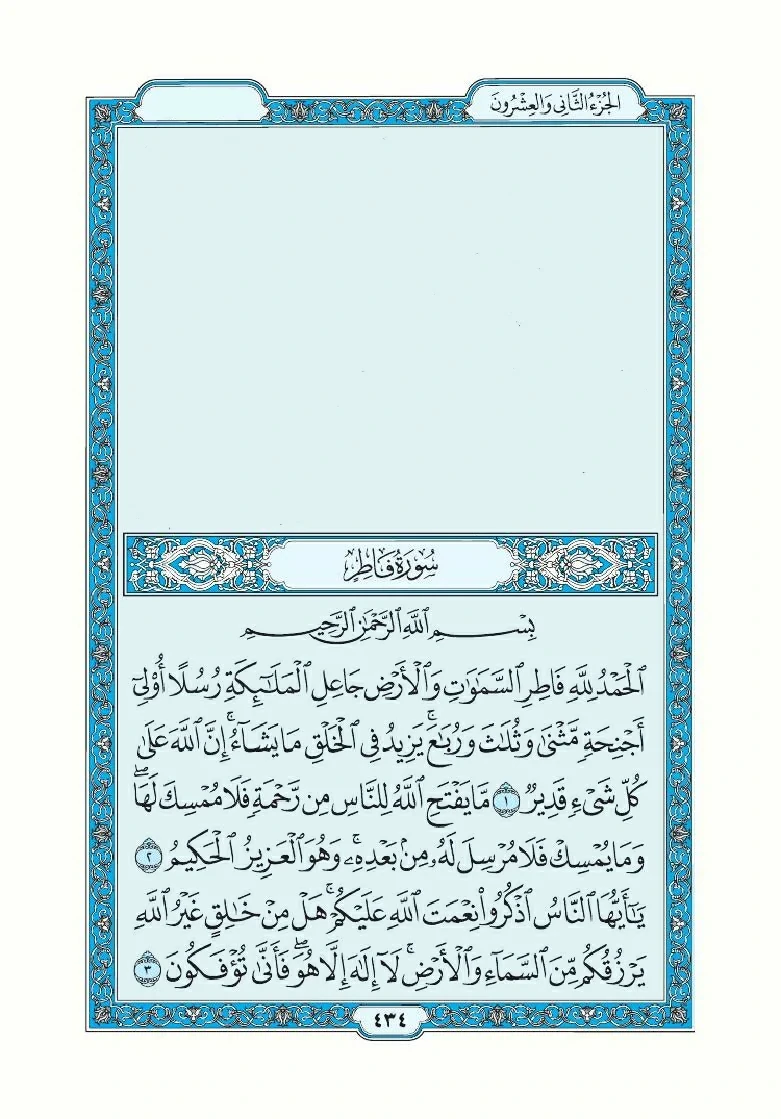 الجُزْءُ الثَّانِى وَالعِشْرُونَ
سُورَةُ فَاطِرٍ
بِسْمِ ٱللَّهِ ٱلرَّحْمَٰنِ ٱلرَّحِيمِ
ٱلْحَمْدُ لِلَّهِ فَاطِرِ ٱلسَّمَٰوَٰتِ وَٱلْأَرْضِ جَاعِلِ ٱلْمَلَٰٓئِكَةِ رُسُلًا أُو۟لِىٓ
أَجْنِحَةٍ مَّثْنَىٰ وَثُلَٰثَ وَرُبَٰعَ ۚ يَزِيدُ فِى ٱلْخَلْقِ مَا يَشَآءُ ۚ إِنَّ ٱللَّهَ عَلَىٰ
كُلِّ شَىْءٍ قَدِيرٌ ١ مَّا يَفْتَحِ ٱللَّهُ لِلنَّاسِ مِن رَّحْمَةٍ فَلَا مُمْسِكَ لَهَا ۖ
وَمَا يُمْسِكْ فَلَا مُرْسِلَ لَهُۥ مِنۢ بَعْدِهِۦ ۚ وَهُوَ ٱلْعَزِيزُ ٱلْحَكِيمُ ٢
يَٰٓأَيُّهَا ٱلنَّاسُ ٱذْكُرُوا۟ نِعْمَتَ ٱللَّهِ عَلَيْكُمْ ۚ هَلْ مِنْ خَٰلِقٍ غَيْرُ ٱللَّهِ
يَرْزُقُكُم مِّنَ ٱلسَّمَآءِ وَٱلْأَرْضِ ۚ لَآ إِلَٰهَ إِلَّا هُوَ ۖ فَأَنَّىٰ تُؤْفَكُونَ ٣
٤٣٤